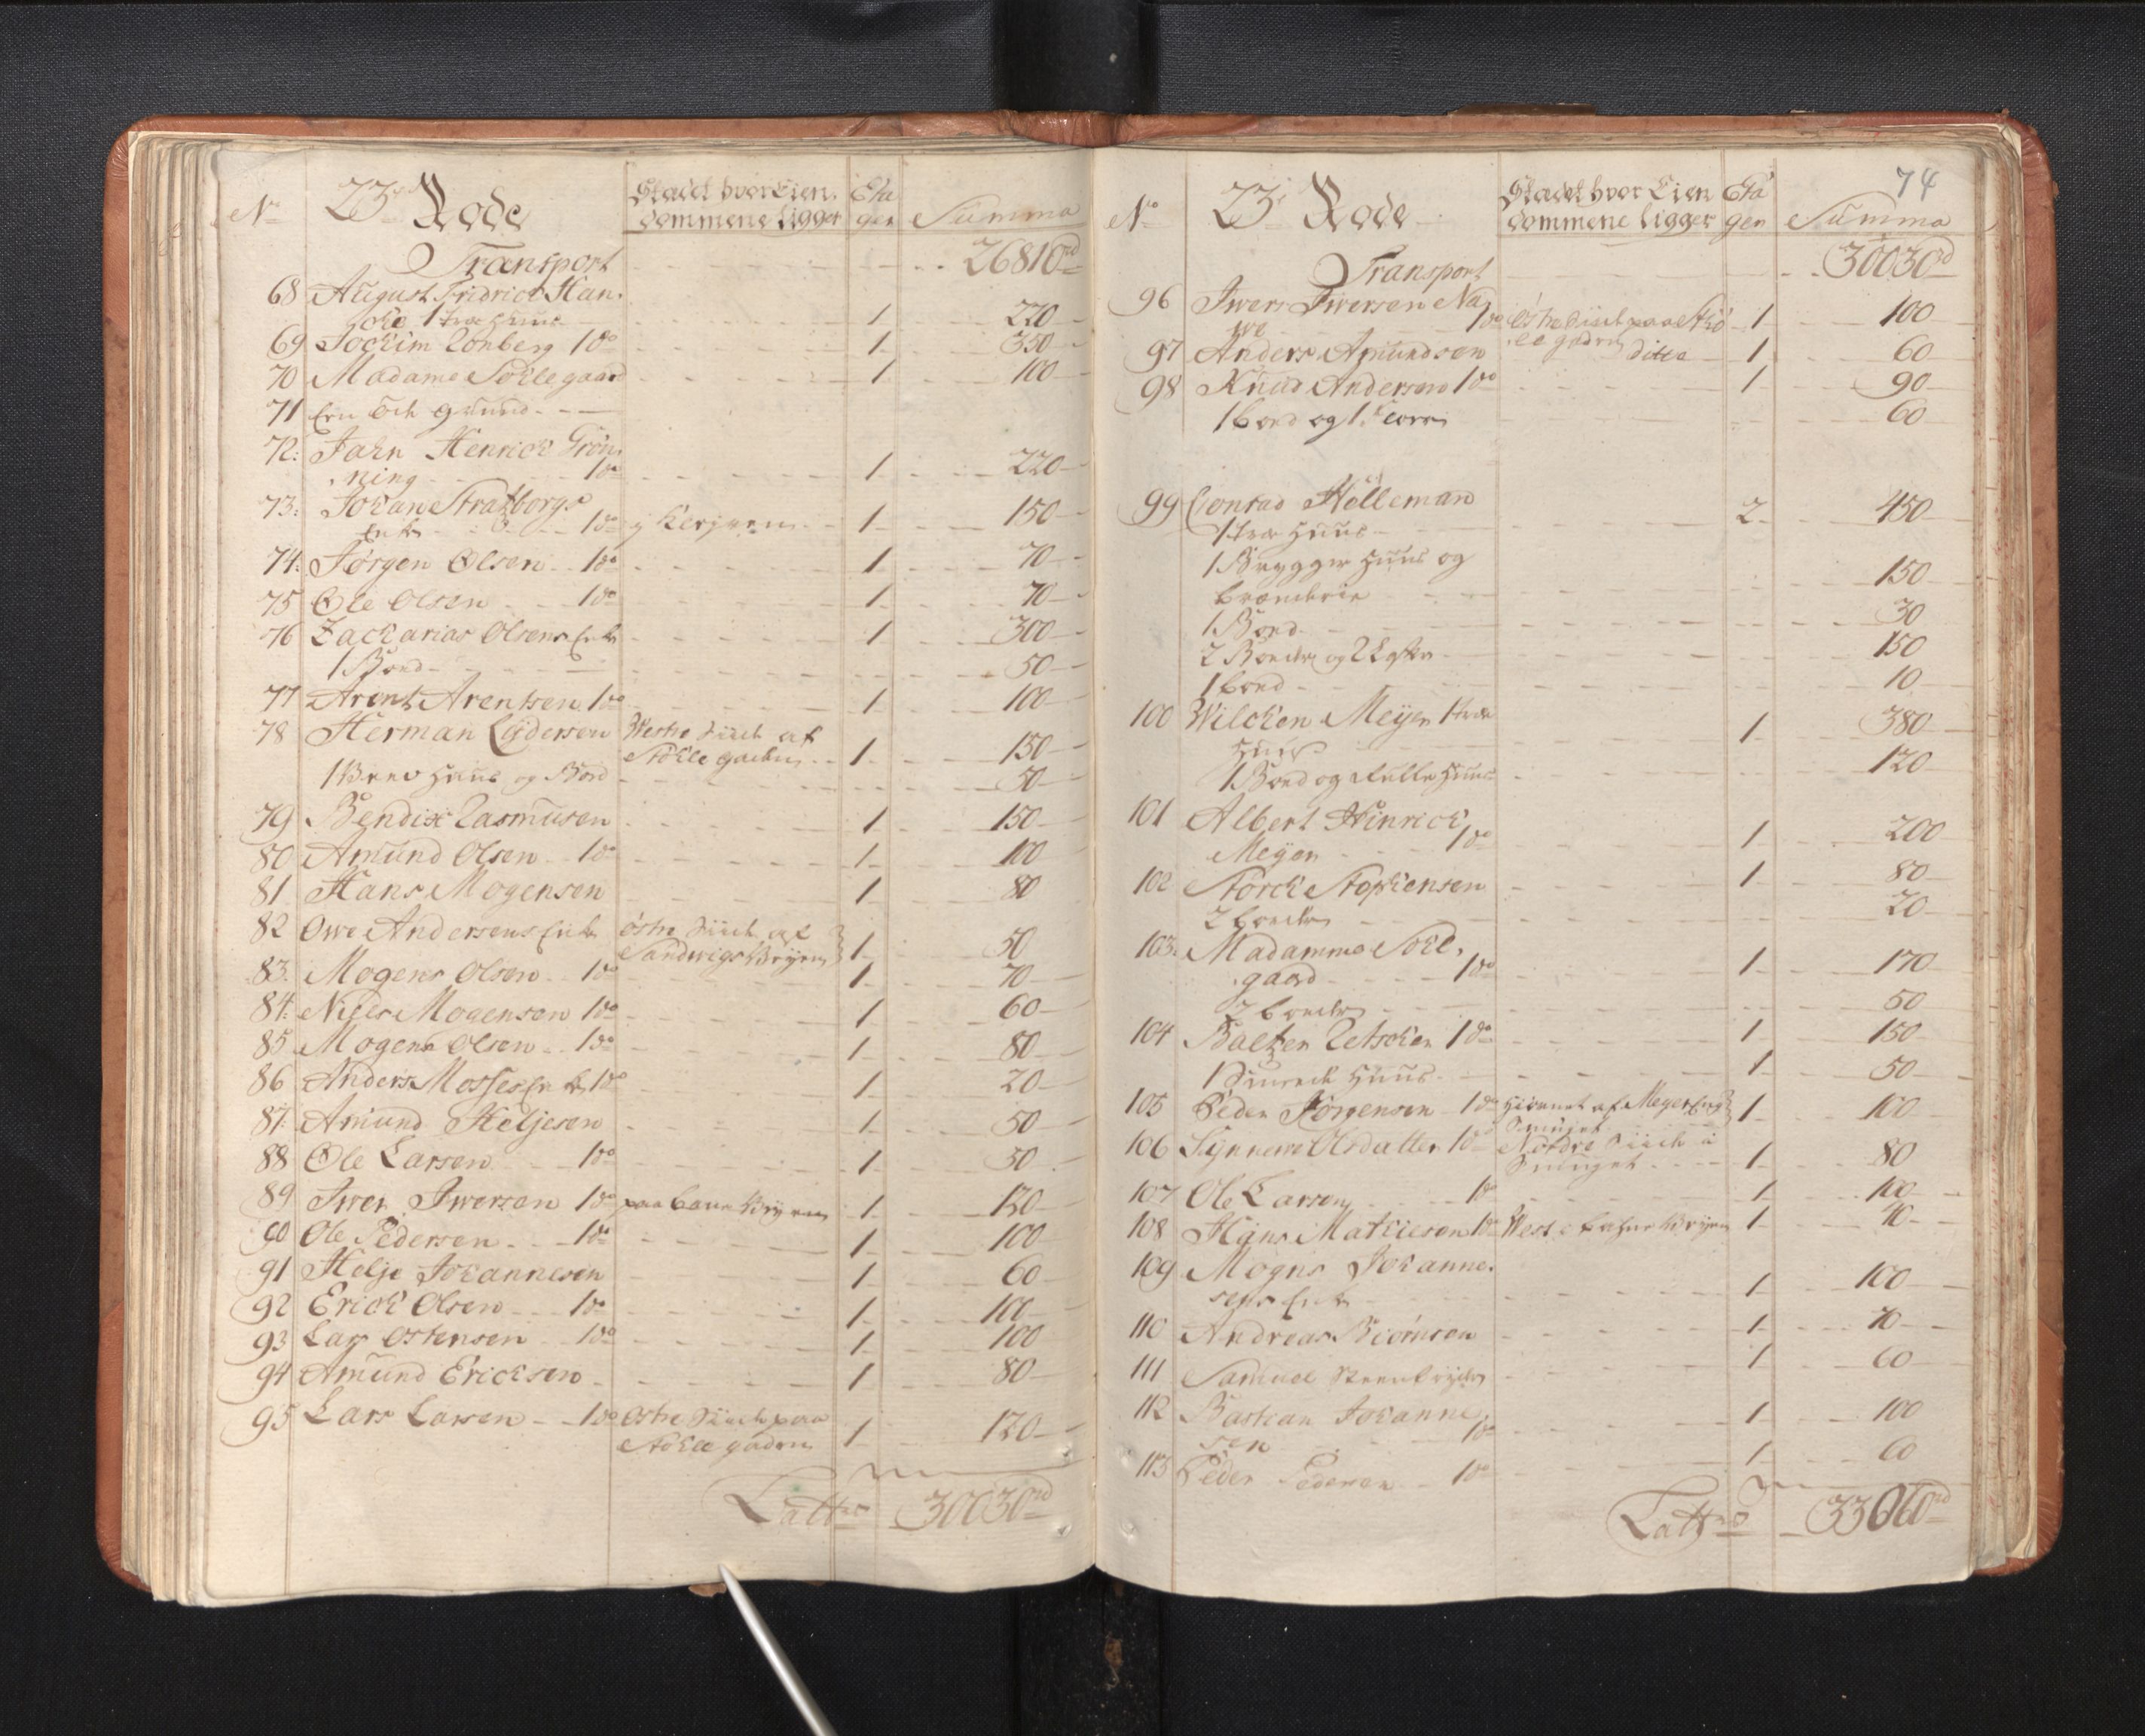 No 23de Rode Stædet hvor Eien- Eta Summa
dommene Ligger gen
Transport 26810rd
68 August Fridrich Han-
che 1 træ Huus 1 220
69 Jochim Ronberg 1 do 1 350
70 Madame Schlegaard 1 100
71 grund
72: Jahn Henrich Grön-
ning 1 do 1 220
73: Johan Stratzborgs
Enke 1 do 1 150
74: Jørgen Olsen 1 do 1 70
75 Ole Olsen 1 do 1 70
76 Zacharias Olsens Enke 1 300
1 Boed 50
77 Arent Arentsen 1 do 1 100
78 Herman Lydersen Westre Siide af
Stølegaden 1 150
Huus og Boed 50
79 Bendix Rasmusen 1 150
80 Amund Olsen 1 do 1 100
81 Hans Mogensen 1 80
82 Owe Andersens Enke østre Siide af
Sandwigs Weyen 1 50
83: Mogens Olsen 1 do 1 70
84: Niels Mogensen 1 do 1 60
85 Mogens Olsen 1 do 1 80
86 Anders Mosses Enke 1 do 1 20
87: Amund Heljesen 1 50
88 Ole Larsen 1 do 1 50
89 Iwer Iwersen 1 do paa Weyen 1 130
90 Ole Pedersen 1 do 1 100
91 Helje Johannesen 1 60
92 Erich Olsen 1 do 1 100
93 Lars Ostensen 1 do 1 100
94 Amund Ericksen 1 80
95 Lars Larsen 1 do Østre Siide paa
Stølegaden 1 120
Latter 30030rd
74
No 23de Rode Stædet hvor Eien Eta Summa
dommene Ligger gen
Transport 30030rd
96 Iwer Iwersen
1 do Østre Siide paa Stø- 1 100
legaden
97 Anders Amundsen ditto 1 60
98 Knud Andersen 1 do 1 90
1 boed og 1 60
99 Conrad Hölleman 2 450
1 træ Huus
1 Brygger Huus og
brænderie 150
1 Boed 30
2 Boeder og 150
1 boed 10
100 Wilcken Meyer 1 træ
Huus 1 380
1 Boed og Huus 120
101 Albert Hinrich
Meyer 1 do 1 200
102 Storck Stephensen 1 80
2 boeder 20
103: Madamme Schl-
gaard 1 do 1 170
2 boeder 50
104 Baltzer Retscher 1 do 1 150
1 Huus 1 50
105 Peder Jørgensen 1 do Hiørnet af Meyer 1 100
Smuget
106 Synnewe Olsdatter 1 do Nordre Siide i
Smuget 1 80
107 Ole Larsen 1 do 1 100
108 Hans Mathiesen 1 do West Weyen 1 70
109 Mogns Johanne-
sens Enke 1 100
110 Andreas Biørnsen 1 70
111 Samuel Steenbryder 1 60
112 Bastian Johanne-
sen 1 do 1 100
113 Peder Pedersen 1 do 1 60
Latter 33060rd